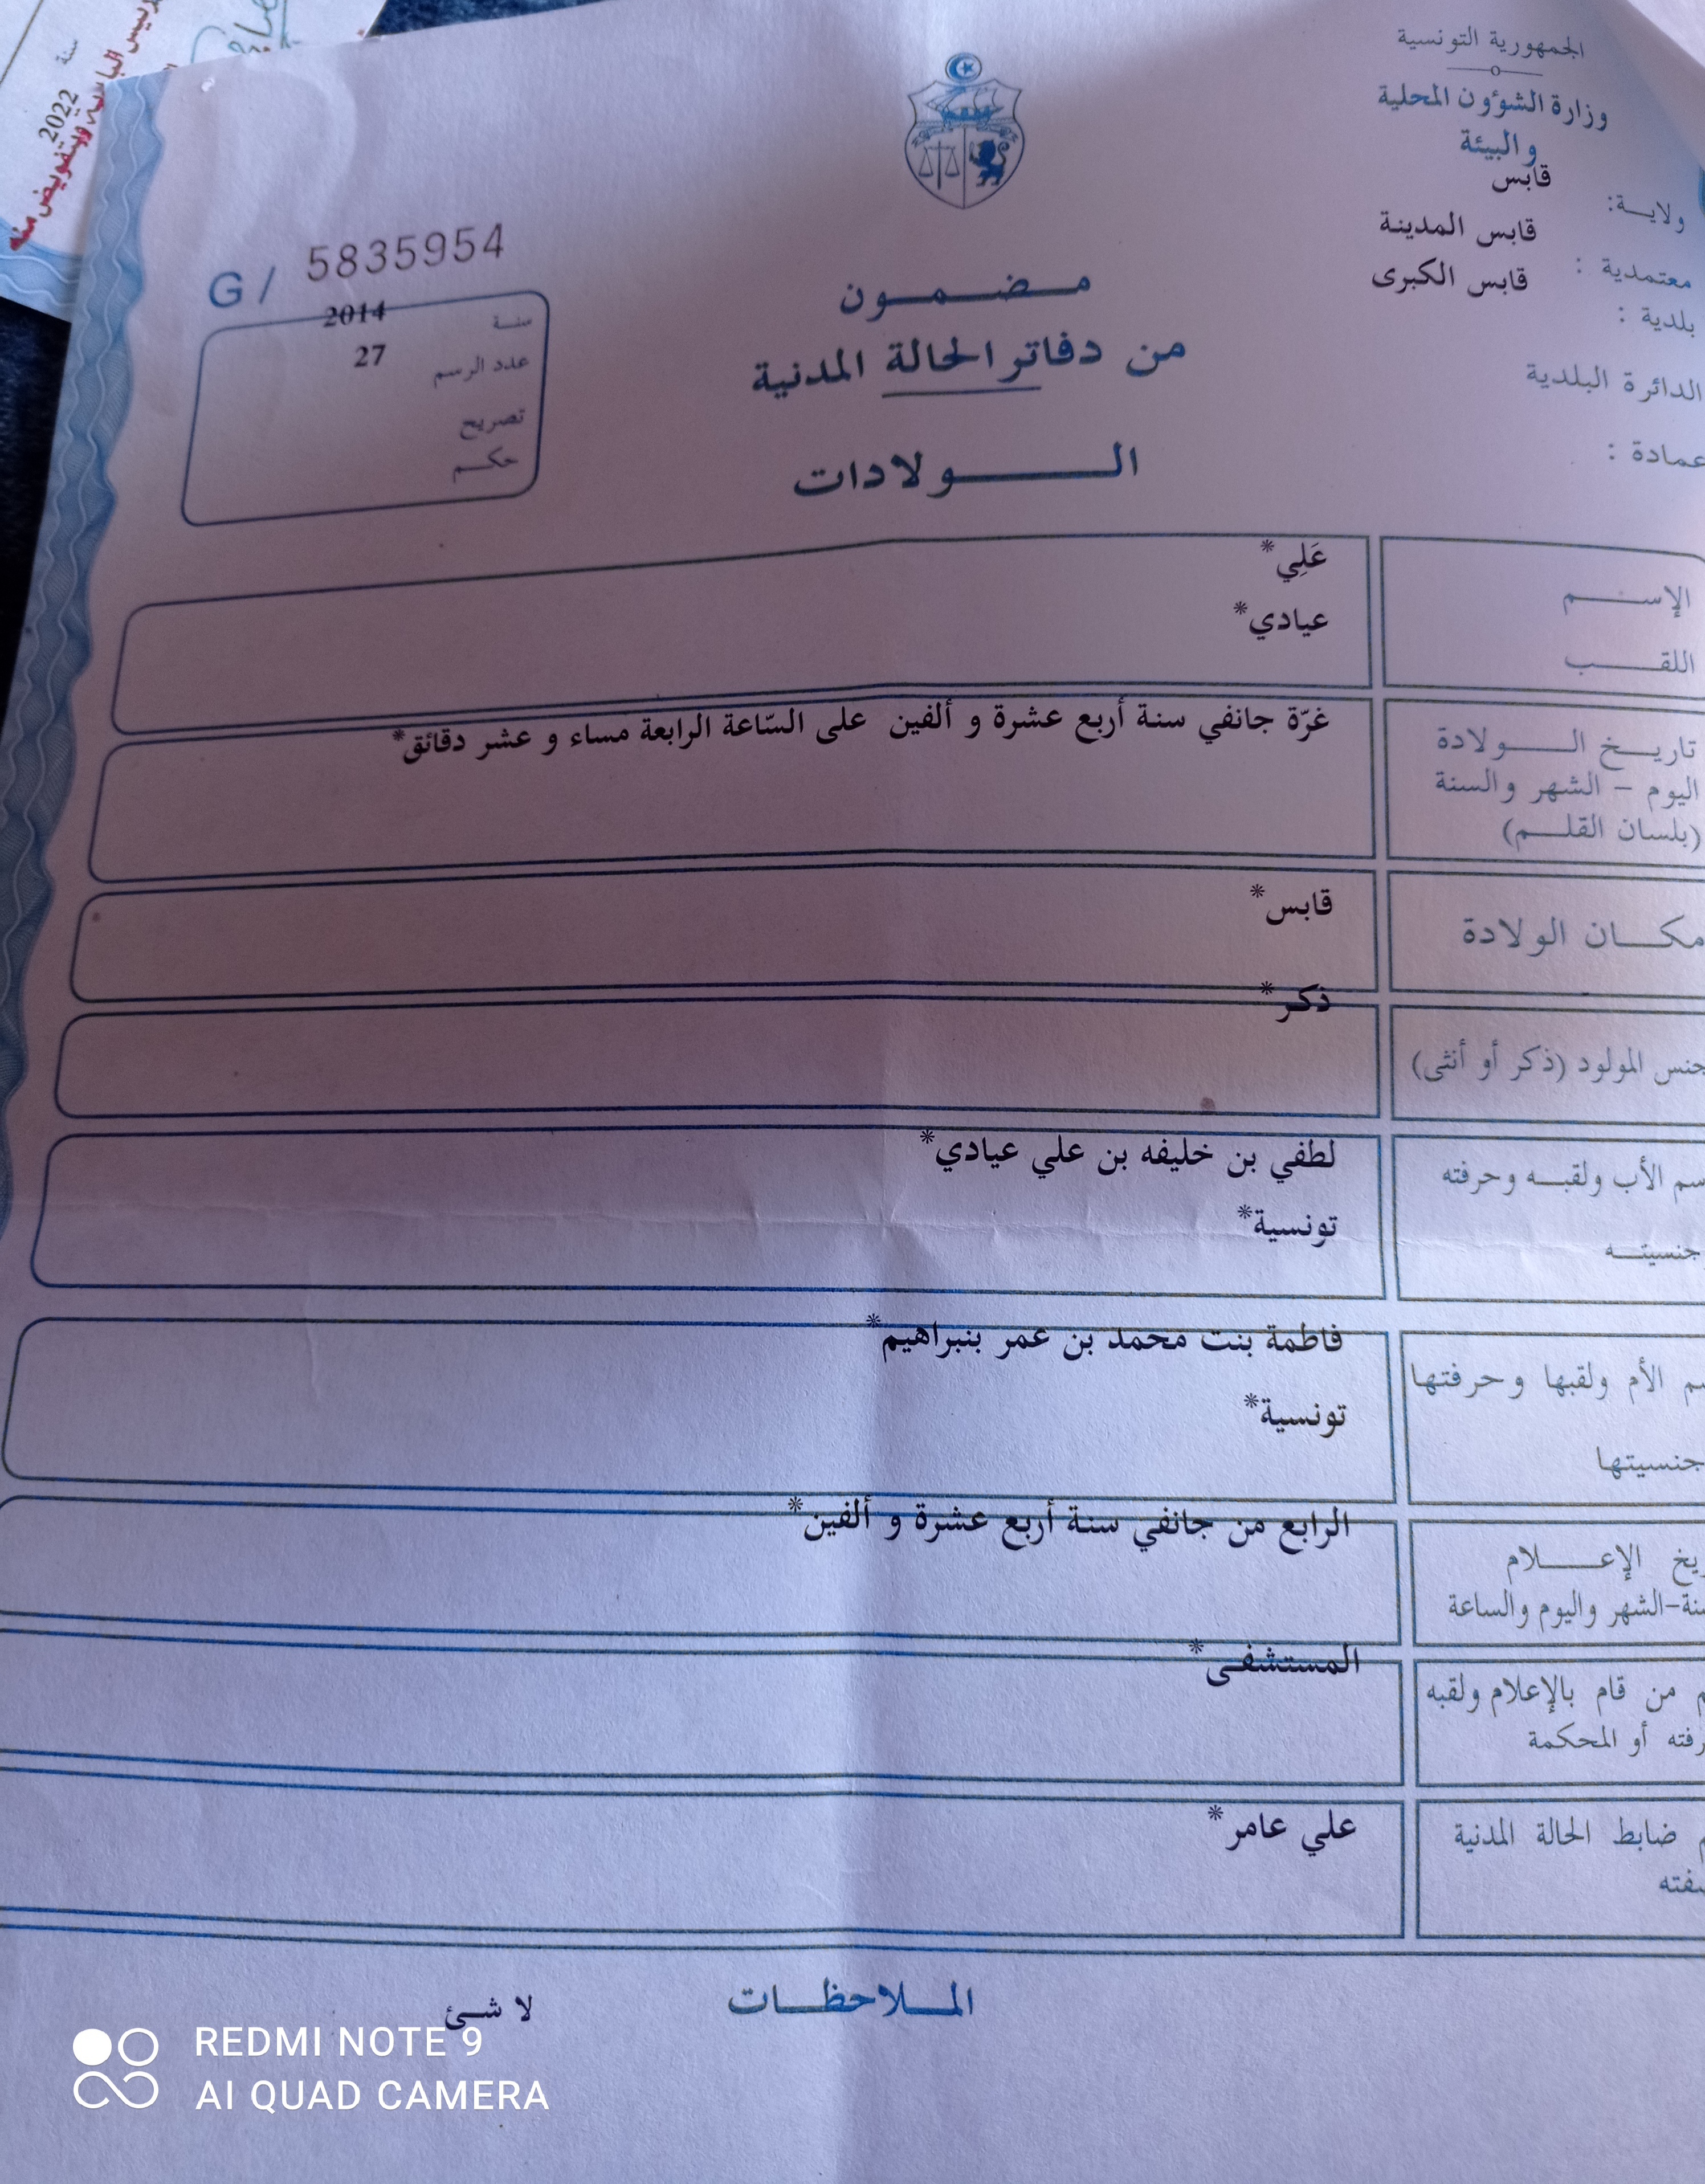 الجمهورية التونسية
وزارة الشؤون المحلية
و البيئة
ولايـة: قابس
معتمدية : قابس المدينة
بلدية : قابس الكبرى
الدائرة البلدية
عمادة :
G / 5835954
سنـة 2014
عدد الرسم 27
تصريح
حكـم
مـضـمـون
من دفاتر الحالة المدنية
الـولادات
الإسـم عَلِي*
اللقـب عيادي*
تاريـخ الـولادة غرّة جانفي سنة أربع عشرة و ألفين على السّاعة الرابعة مساء و عشر دقائق*
اليوم - الشهر والسنة
(بلسان القلـم)
مكـان الولادة قابس*
جنس المولود (ذكر أو أنثى) ذكر*
سم الأب ولقبـه وحرفته لطفي بن خليفه بن علي عيادي*
جنسيتـه تونسية*
م الأم ولقبها وحرفتها فاطمة بنت محمد بن عمر بنبراهيم*
جنسيتها تونسية*
ريخ الإعـلام الرابع من جانفي سنة أربع عشرة و ألفين*
نة-الشهر واليوم والساعة
م من قام بالإعلام ولقبه المستشفى*
رفته أو المحكمة
م ضابط الحالة المدنية علي عامر*
فته
المـلاحظـات
لا شئ
REDMI NOTE 9
AI QUAD CAMERA
سنة
2022
وبتفويض منه